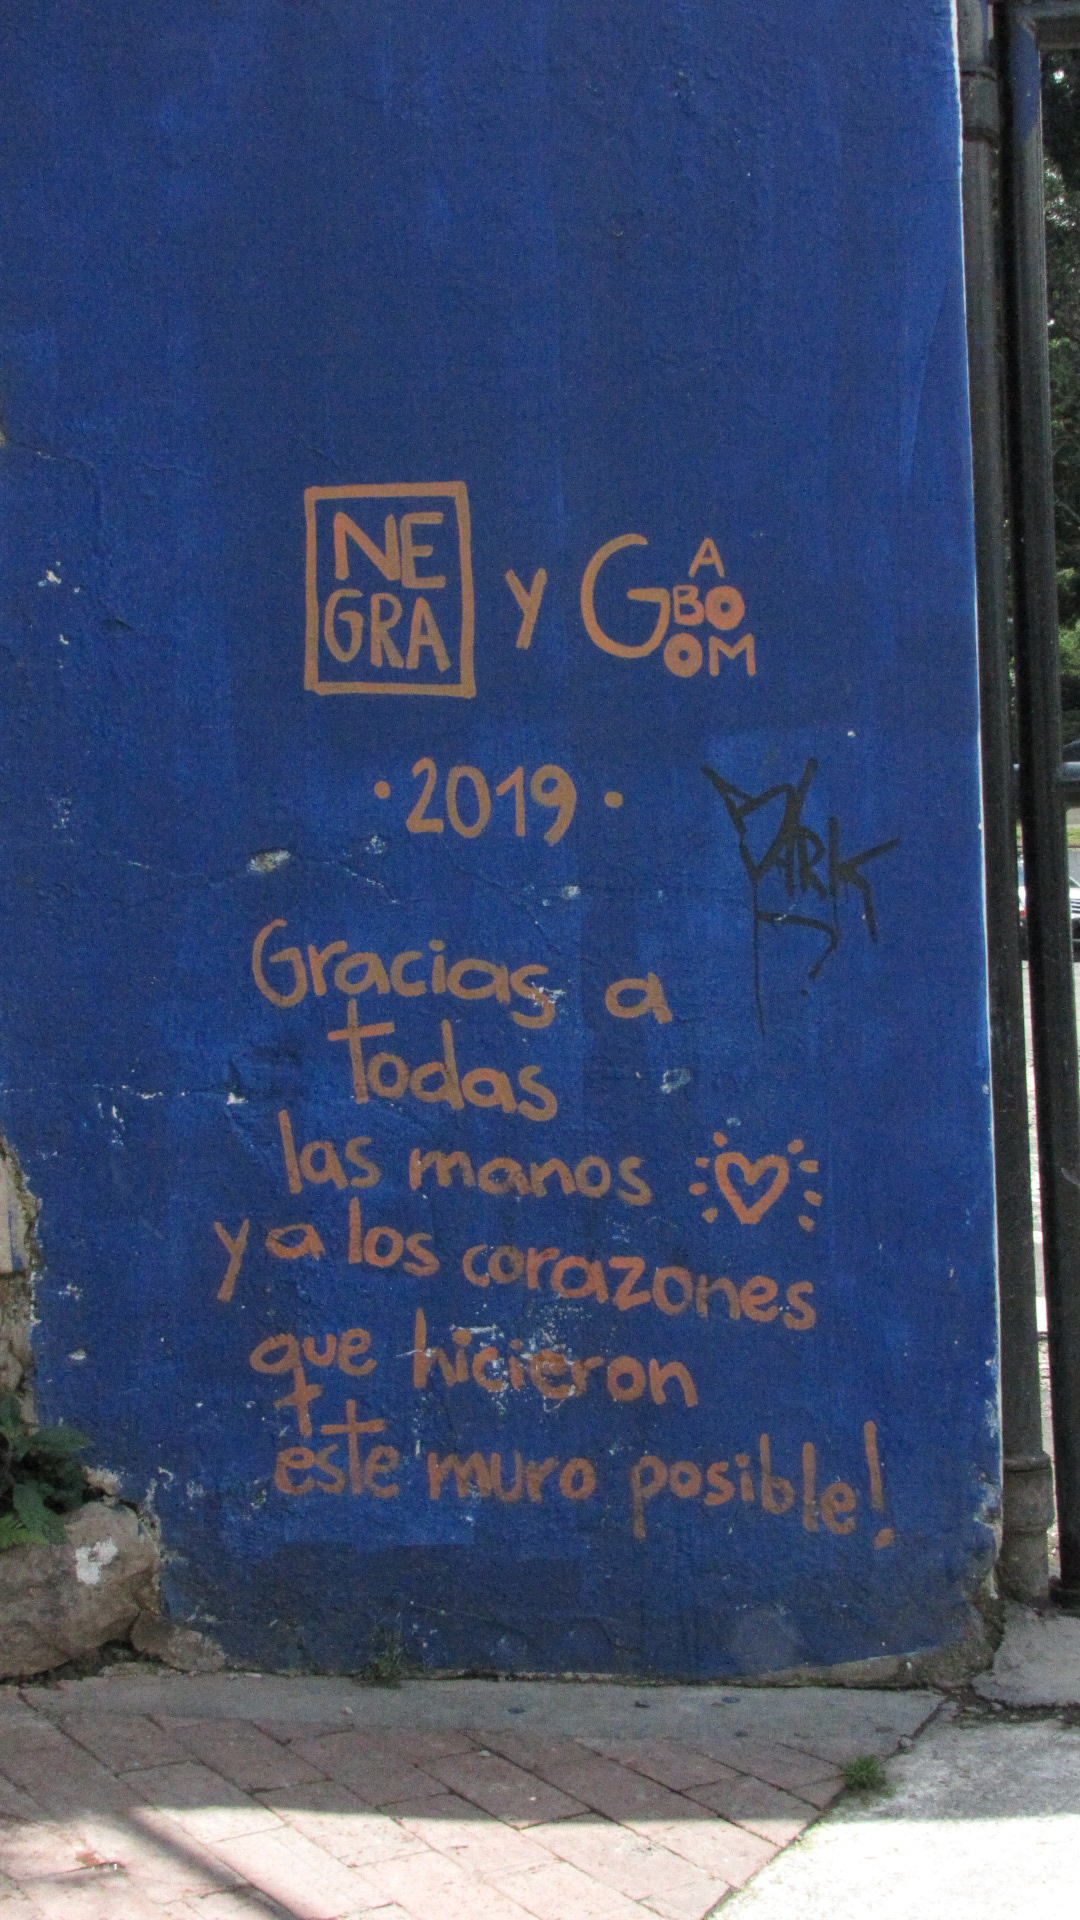 NE
GRA
y
GABOOM
· 2019 ·
Gracias a
todas
las manos
y a los corazones
que hicieron
este muro posible!